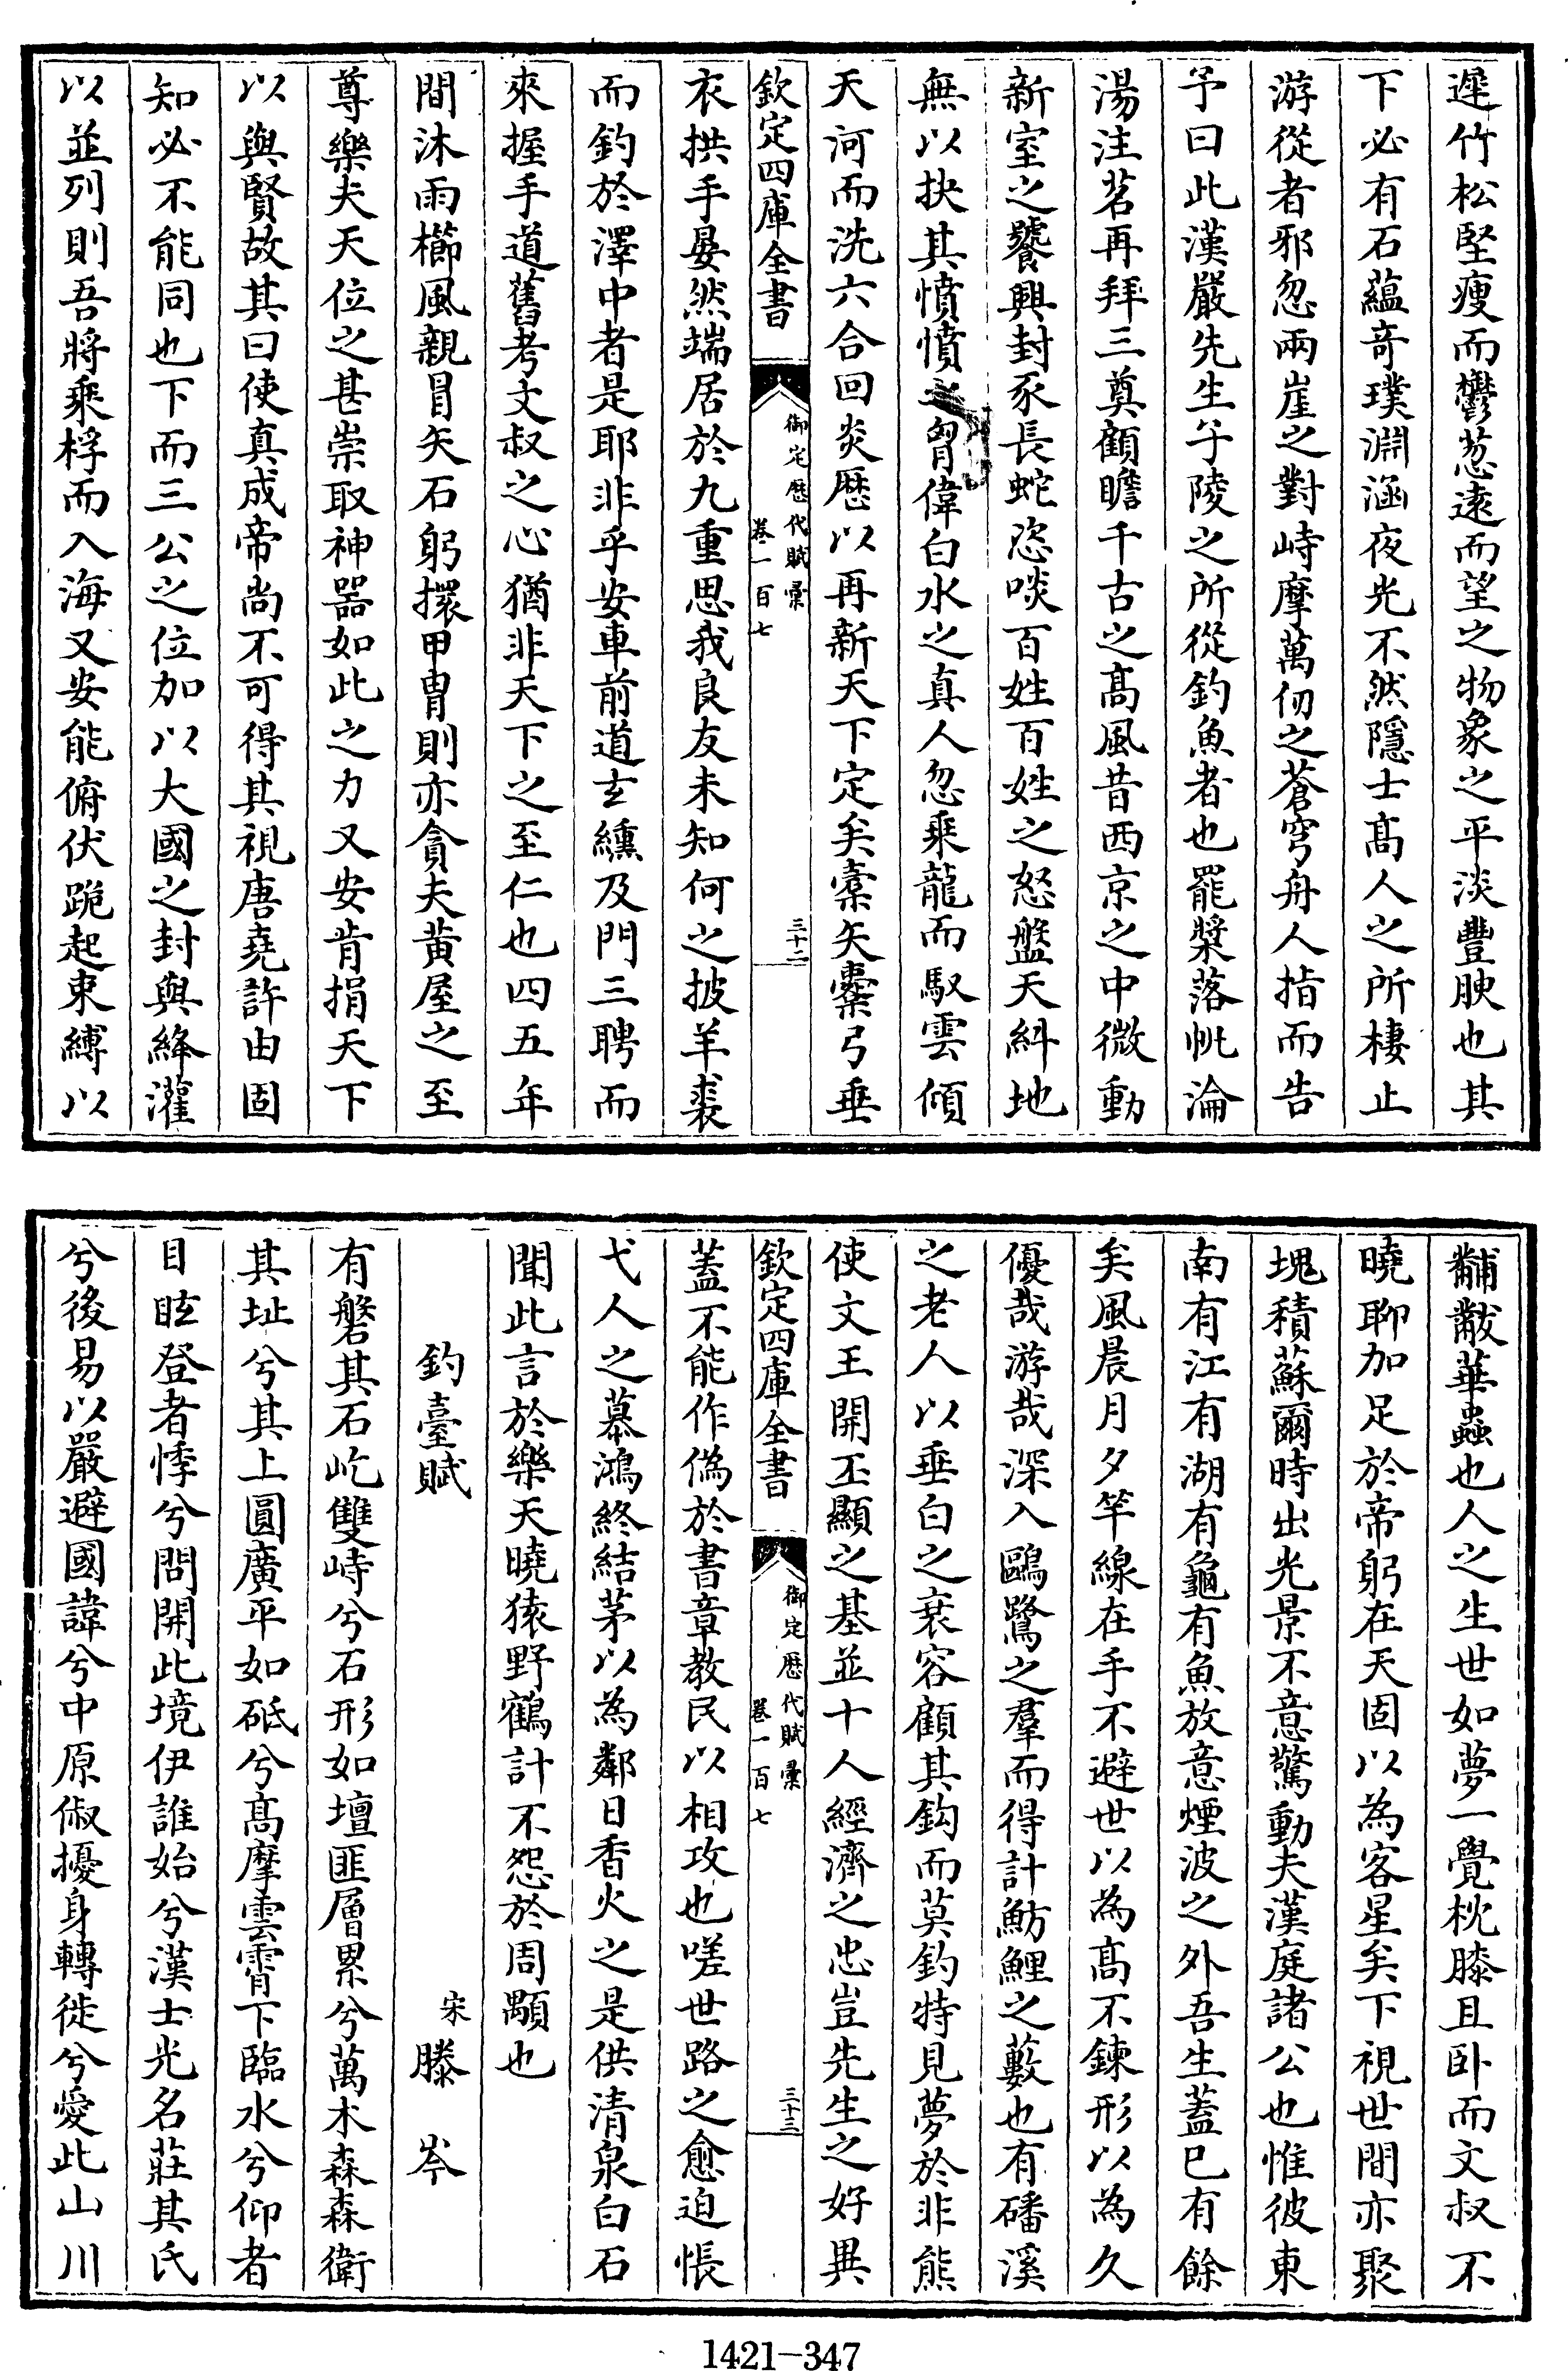 遲竹松堅瘦而鬱葱遠而望之物象之平淡豐腴也其
下必有石蘊竒璞淵涵夜光不然隱士髙人之所棲止
游從者邪忽兩崖之對峙摩萬仞之蒼穹舟人指而告
予曰此漢嚴先生子陵之所從釣魚者也罷槳落帆淪
湯注茗再拜三奠顧瞻千古之髙風昔西京之中微動
新室之饕興封豕長蛇恣啖百姓百姓之怒盤天紏地
無以抉其憤憤之胷偉白水之真人忽乘龍而馭雲傾
天河而洗六合回炎厯以再新天下定矣櫜矢櫜弓垂
欽定四庫全書
御定厯代賦彚
卷一百七
三十二
衣拱手晏然端居於九重思我良友未知何之披羊裘
而釣於澤中者是耶非乎安車前道玄纁及門三聘而
來握手道舊考文叔之心猶非天下之至仁也四五年
間沐雨櫛風親冒矢石躬擐甲胄則亦貪夫黄屋之至
尊樂夫天位之甚崇取神器如此之力又安肯捐天下
以與賢故其曰使真成帝尚不可得其視唐堯許由固
知必不能同也下而三公之位加以大國之封與絳灌
以並列則吾將乘桴而入海又安能俯伏跪起束縛以
黼黻華蟲也人之生世如夢一覺枕膝且卧而文叔不
曉聊加足於帝躬在天固以為客星矣下視世間亦聚
塊積蘇爾時出光景不意驚動夫漢庭諸公也惟彼東
南有江有湖有龜有魚放意煙波之外吾生蓋已有餘
矣風晨月夕竿線在手不避世以為髙不鍊形以為久
優哉游哉深入鷗鷺之羣而得計魴鯉之藪也有磻溪
之老人以垂白之衰容顧其鈎而莫釣特見夢於非熊
使文王開丕顯之基並十人經濟之忠豈先生之好異
欽定四庫全書
御定厯代賦彚
卷一百七
三十三
蓋不能作偽於書章教民以相攻也嗟世路之愈迫悵
弋人之慕鴻終結茅以為鄰日香火之是供清泉白石
聞此言於樂天曉猿野鶴計不怨於周顒也
釣臺賦
宋滕岑
有磐其石屹雙峙兮石形如壇匪層累兮萬木森森衛
其址兮其上圓廣平如砥兮髙摩雲霄下臨水兮仰者
目眩登者悸兮問開此境伊誰始兮漢士光名莊其氏
兮後易以嚴避國諱兮中原俶擾身轉徙兮愛此山川
1421-347